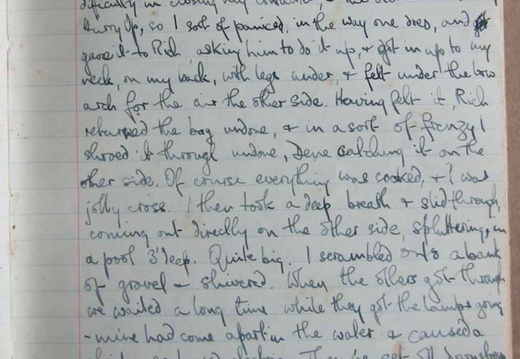 difficulty in closing my container, & he said
Hurry up, so I sort of paniced, in the way one does, and
gave it to Rich, asking him to do it up, & got in up to my
neck, on my back, with legs under & felt under the low
arch for the air the other side. Having felt it Rich
returned the bag undone, & in a sort of frenzy I
shoved it through undone, Deve catching it on the
other side. Of course everything was soaked, & I was
jolly cross. I then took a deep breath & slid through,
coming out directly on the other side, spluttering, in
a pool 3' deep. Quite big. I scrambled onto a bank
of gravel & shivered. When the others got through
we waited a long time while they got the lamps going
- mine had come apart in the water & caused a